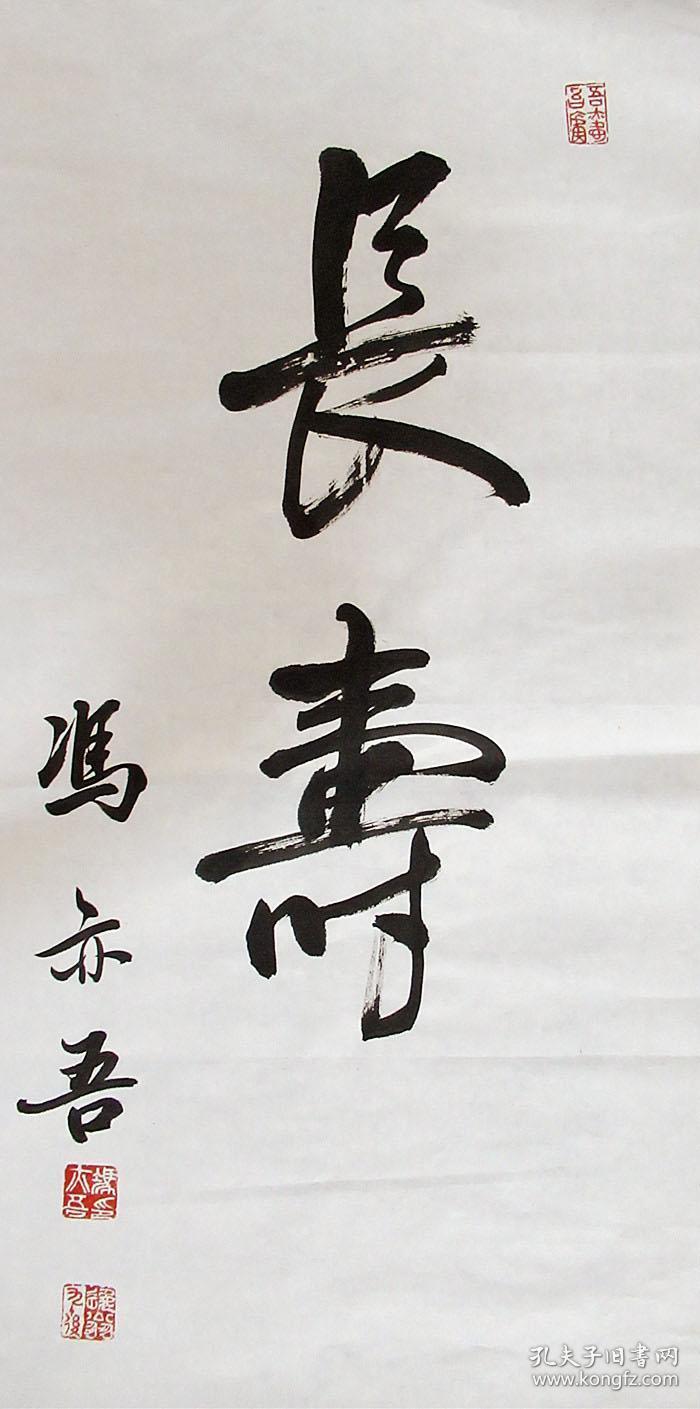 長壽
馮亦吾
孔夫子旧书网
www.kongfz.com